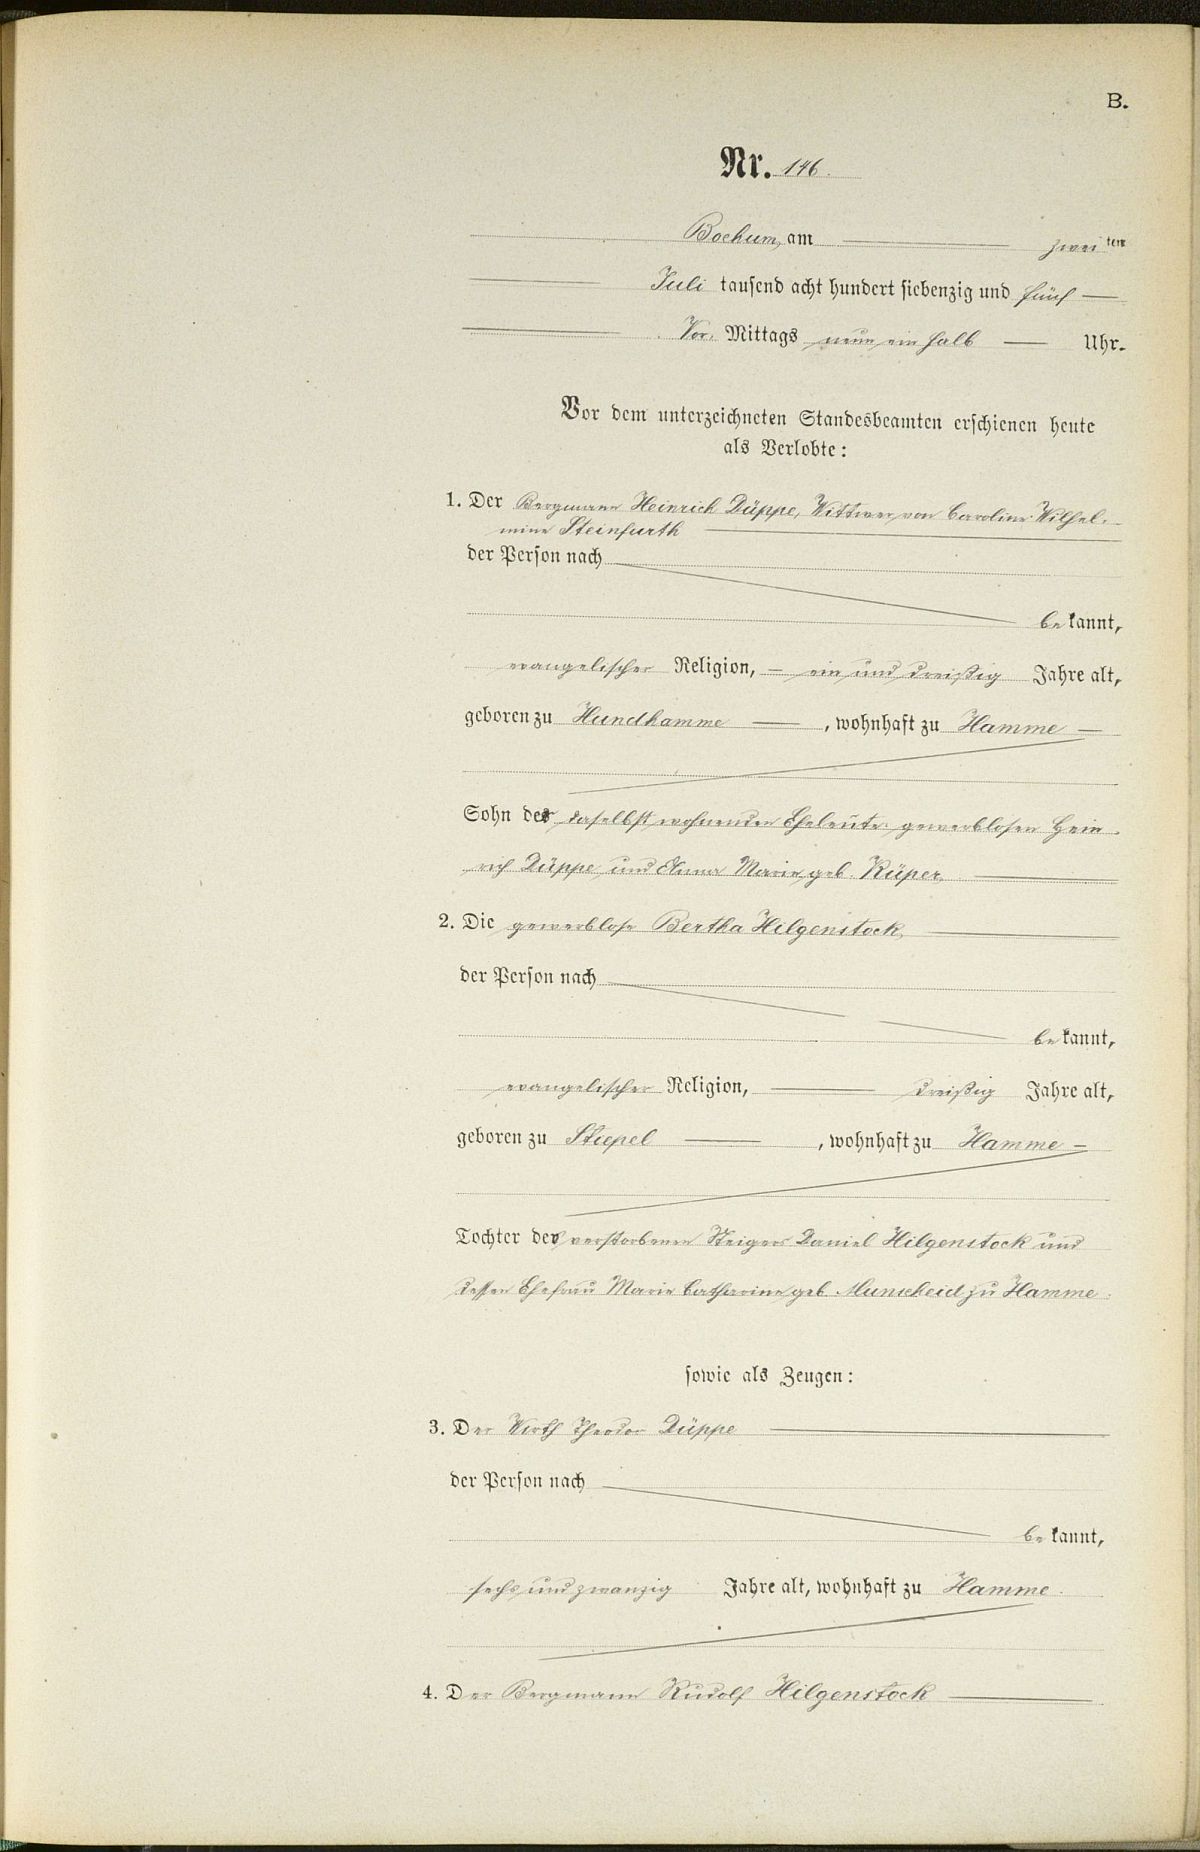 B.
Nr. 146.
Bochum, am zwei ten
Juli tausend acht hundert siebenzig und fünf
Vor Mittags neun ein halb Uhr.
Vor dem unterzeichneten Standesbeamten erschienen heute
als Verlobte:
1. Der Bergmann Heinrich Düppe, Wittwer von Caroline Wilhel-
mine Steinfurth
der Person nach
be kannt,
evangelischer Religion, ein und dreißig Jahre alt,
geboren zu Hundhamme, wohnhaft zu Hamme
Sohn der daselbst wohnenden Eheleute gewerblosen Hein-
rich Düppe und Anna Marie geb. Küper
2. Die gewerblose Bertha Hilgenstock
der Person nach
be kannt,
evangelischer Religion, dreißig Jahre alt,
geboren zu Stiepel, wohnhaft zu Hamme
Tochter des verstorbenen Steigers Daniel Hilgenstock und
dessen Ehefrau Marie Catharine geb. Munscheid zu Hamme.
sowie als Zeugen:
3. Der Wirth Theodor Düppe
der Person nach
be kannt,
sechs und zwanzig Jahre alt, wohnhaft zu Hamme.
4. Der Bergmann Rudolf Hilgenstock